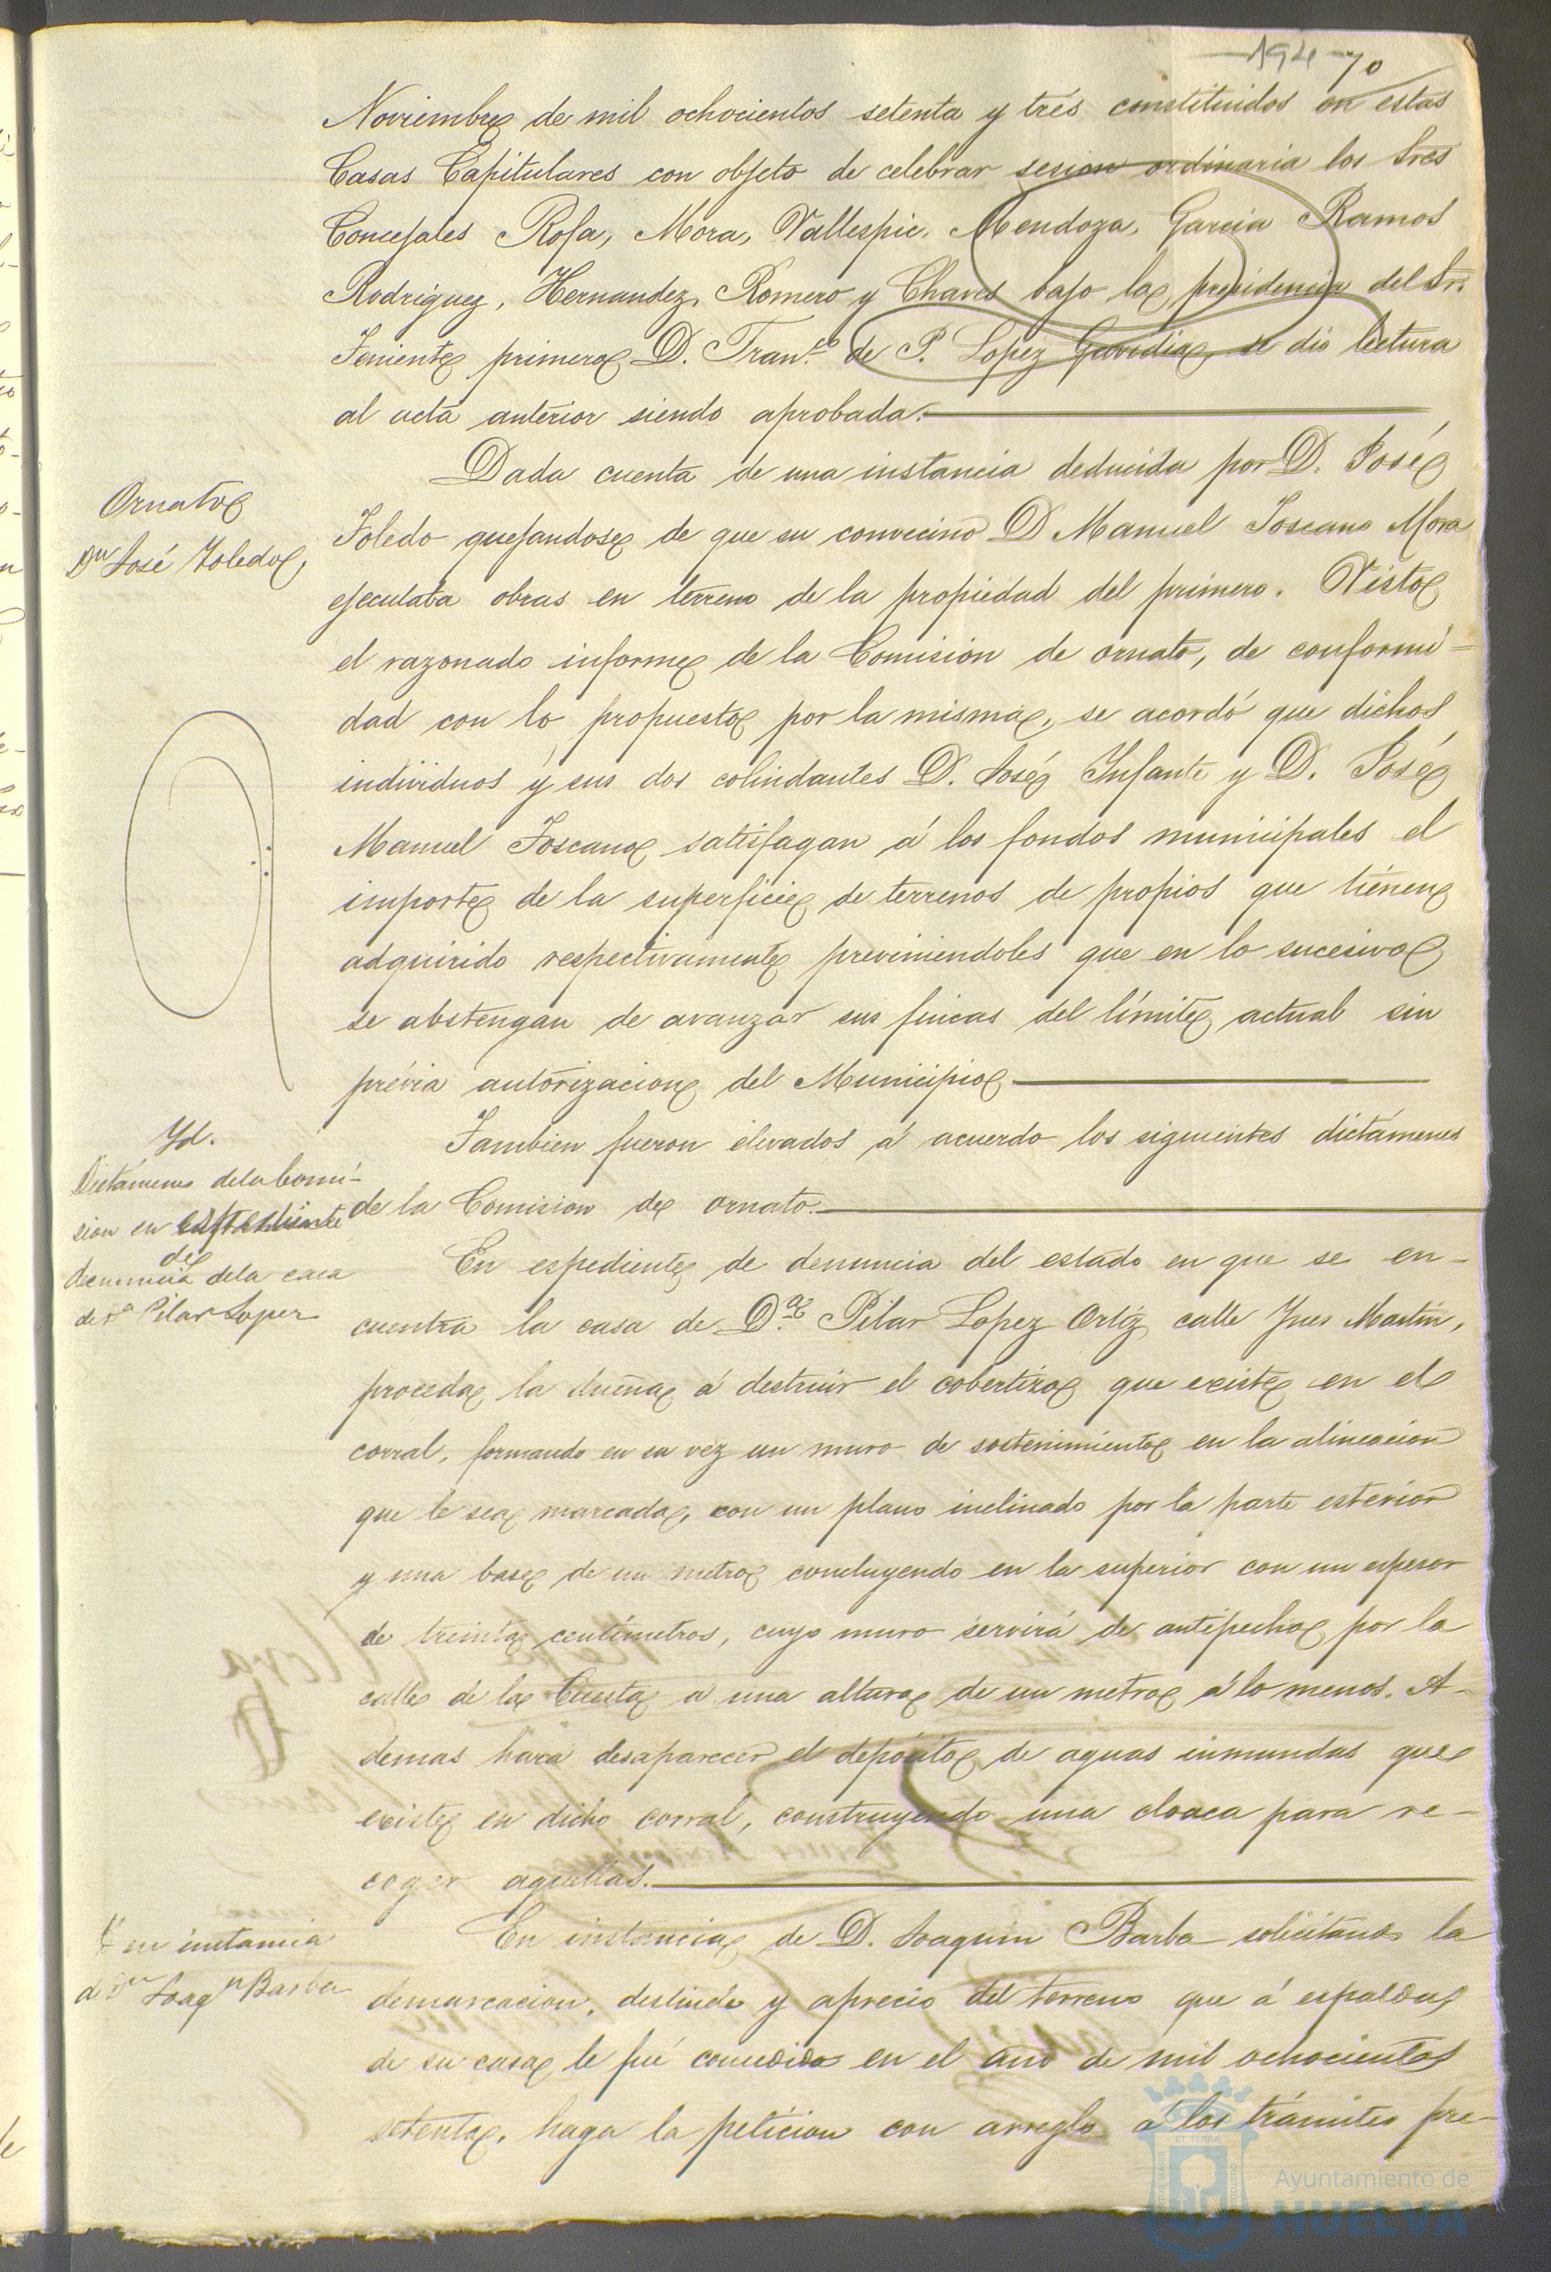 194 70
Noviembre de mil ochocientos setenta y trés constituidos en estas
Casas Capitulares con objeto de celebrar sesion ordinaria los Sres
Concejales Rosa, Mora, Vallespin, Mendoza, Garcia Ramos
Rodriguez, Hernandez, Romero y Chaves bajo la presidencia del Sr.
Teniente primero D. Fran.co de P. Lopez Gavidia, se dio lectura
al acta anterior siendo aprobada.
Ornato
Dn José Toledo,
Dada cuenta de una instancia deducida por D. José
Toledo quejandose de que su convecino D Manuel Toscano Mora
ejecutaba obras en terreno de la propiedad del primero. Visto
el razonado informe de la Comision de ornato, de conformi-
dad con lo propuesto por la misma, se acordó que dichos
individuos y sus dos colindantes D. José Infante y D. José
Manuel Toscano satisfagan á los fondos municipales el
importe de la superficie de terrenos de propios que tienen
adquirido respectivamente previniendoles que en lo sucesivo
se abstengan de avanzar sus fincas del límite actual sin
prévia autorizacion del Municipio
Yd.
Dictámenes de la Comi-
sion en espediente
de
denuncia de la casa
de Da Pilar Lopez
Tambien fueron elevados á acuerdo los siguientes dictámenes
de la Comision de ornato.
En espediente de denuncia del estado en que se en-
cuentra la casa de D.a Pilar Lopez Ortiz calle Ynes Martin,
proceda la dueña á destruir el cobertizo que existe en el
corral, formando en su vez un muro de sostenimiento en la alineacion
que le sea marcada, con un plano inclinado por la parte esterior
y una base de un metro concluyendo en la superior con un espesor
de treinta centímetros, cuyo muro servirá de antipecho por la
calle de la Cuesta á una altura de un metro á lo menos. A-
demas hará desaparecer el depósito de aguas inmundas que
existe en dicho corral, construyendo una cloaca para re-
coger aquellas.
Yd en instancia
de Dn Joaqn Barba
En instancia de D. Joaquin Barba solicitando la
demarcacion, deslinde y aprecio del terreno que á espaldas
de su casa le fué concedido en el año de mil ochocientos
setenta, haga la peticion con arreglo á los trámites pre-
Ayuntamiento de
HUELVA